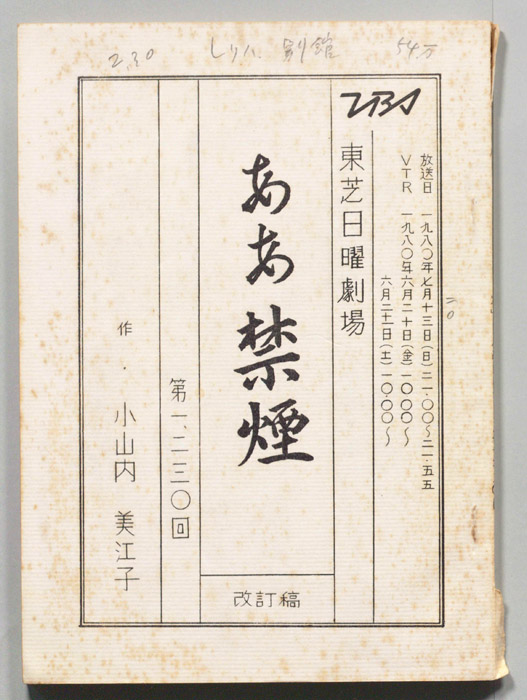 2.30 しリハ、別館 54万
TBS
放送日 一九八〇年七月十三日(日)二一・〇〇〜二一・五五
VTR 一九八〇年六月二十日(金)一〇・〇〇〜
六月二十一日(土)一〇・〇〇〜
二〇
東芝日曜劇場
ああ禁煙
改訂稿
第一、二三〇回
作・小山内 美江子